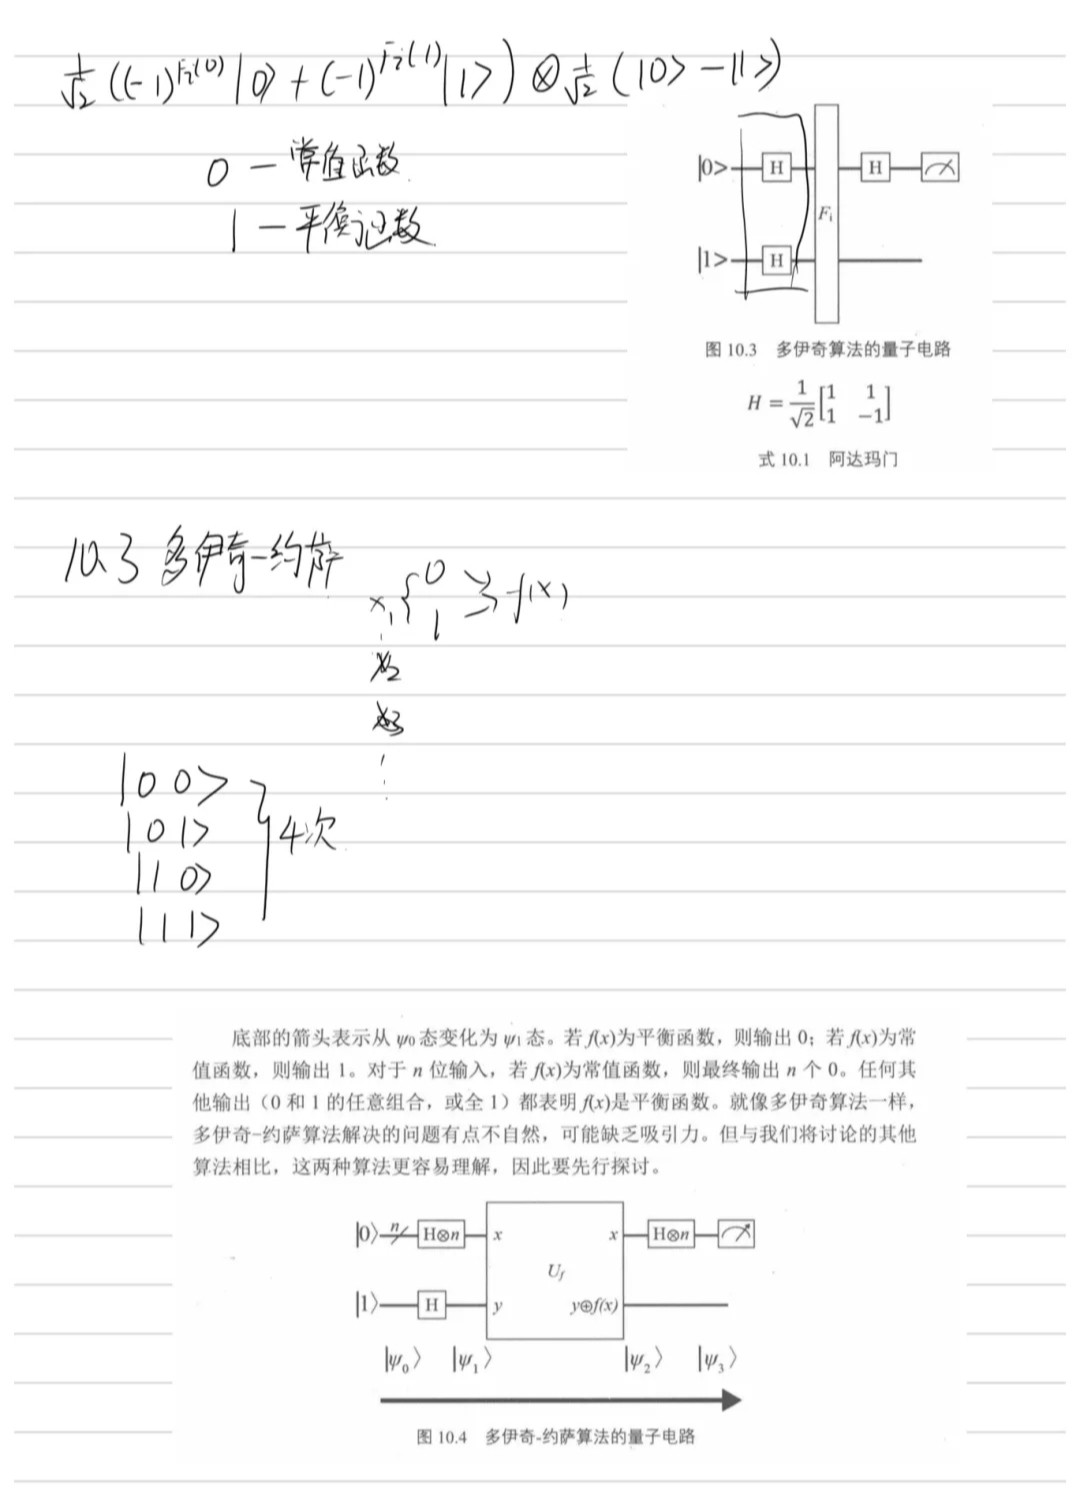 1/√2 ((-1)^F₂(0) |0> + (-1)^F₂(1) |1>) ⊗ 1/√2 (|0> - |1>)
0 — 常值函数
1 — 平衡函数
|0> H H
Fᵢ
|1> H
图 10.3 多伊奇算法的量子电路
H = 1/√2 [1 1
1 -1]
式 10.1 阿达玛门
10.3 多伊奇-约萨
x₁ { 0 1 } f(x)
x₂
x₃
⋮
|0 0>
|0 1> 4次
|1 0>
|1 1>
底部的箭头表示从 ψ₀ 态变化为 ψ₁ 态。若 f(x)为平衡函数，则输出 0；若 f(x)为常
值函数，则输出 1。对于 n 位输入，若 f(x)为常值函数，则最终输出 n 个 0。任何其
他输出（0 和 1 的任意组合，或全 1）都表明 f(x)是平衡函数。就像多伊奇算法一样，
多伊奇-约萨算法解决的问题有点不自然，可能缺乏吸引力。但与我们将讨论的其他
算法相比，这两种算法更容易理解，因此要先行探讨。
|0⟩ n H⊗n x x H⊗n
U_f
|1⟩ H y y⊕f(x)
|ψ₀⟩ |ψ₁⟩ |ψ₂⟩ |ψ₃⟩
图 10.4 多伊奇-约萨算法的量子电路